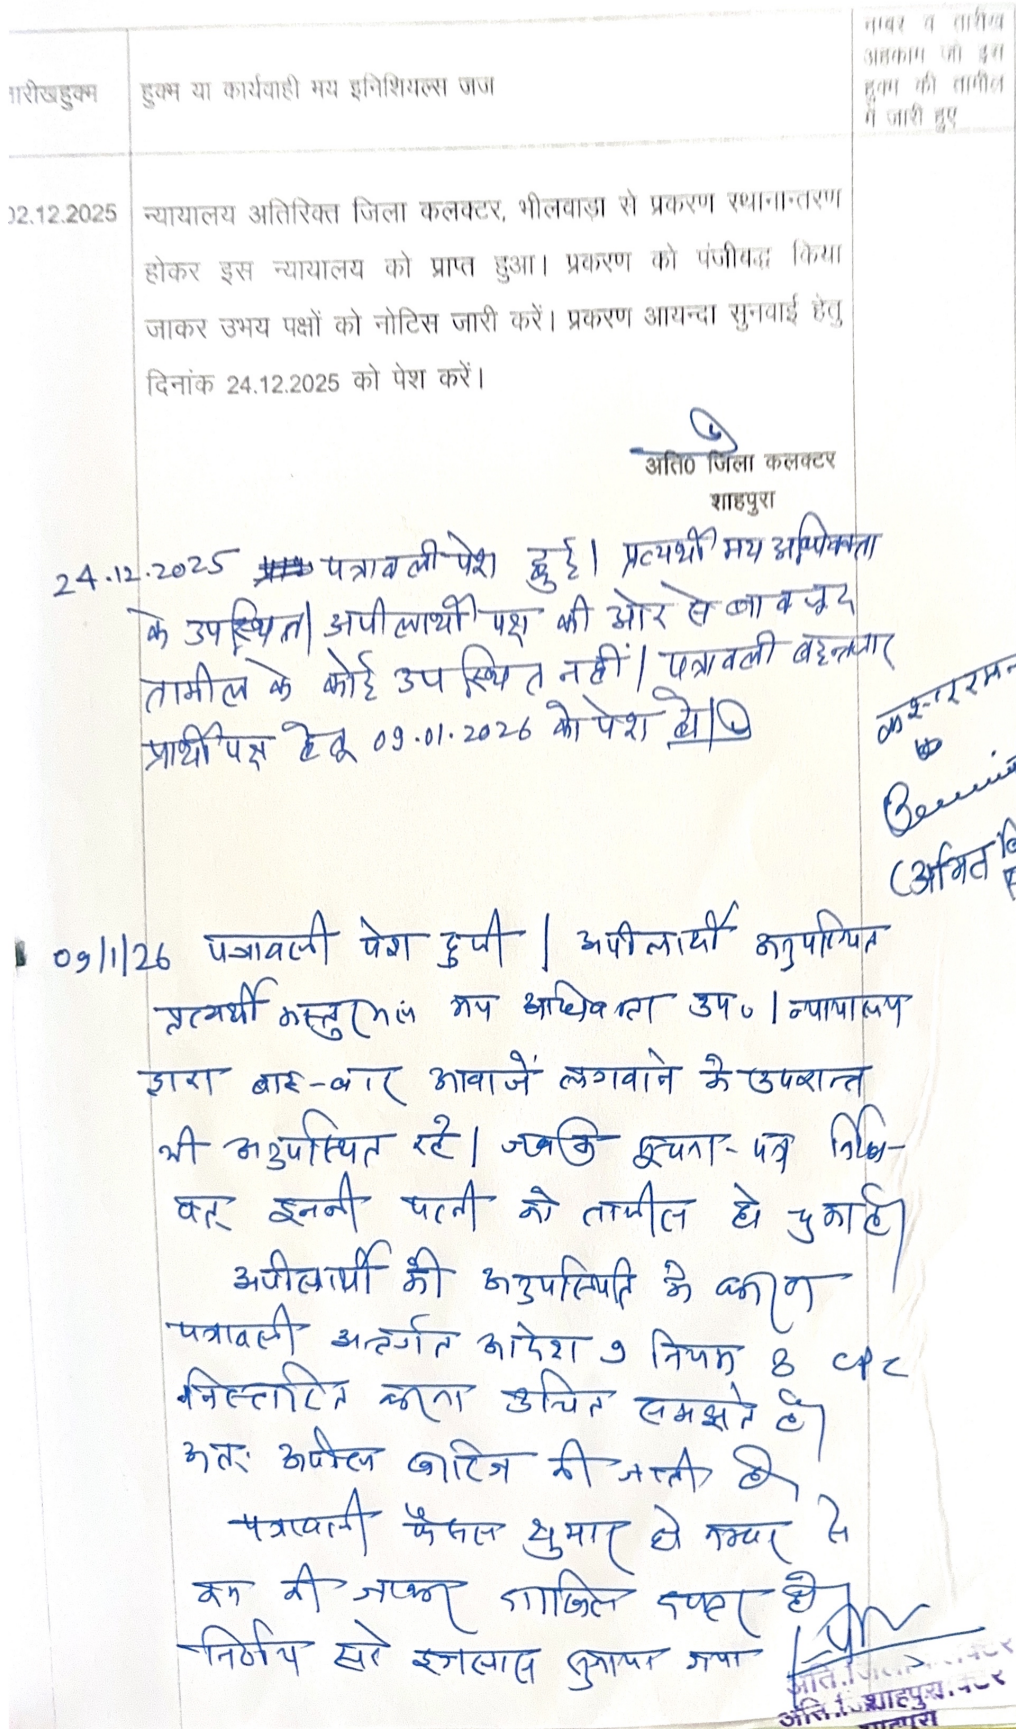 नम्बर व तारीख
अहकाम जो इस
हुक्म की तामील
में जारी हुए
तारीखहुक्म
हुक्म या कार्यवाही मय इनिशियल्स जज
02.12.2025
न्यायालय अतिरिक्त जिला कलक्टर, भीलवाड़ा से प्रकरण स्थानान्तरण
होकर इस न्यायालय को प्राप्त हुआ। प्रकरण को पंजीबद्ध किया
जाकर उभय पक्षों को नोटिस जारी करें। प्रकरण आयन्दा सुनवाई हेतु
दिनांक 24.12.2025 को पेश करें।
अति० जिला कलक्टर
शाहपुरा
24.12.2025 पत्रावली पेश हुई। प्रत्यर्थी मय अधिवक्ता
के उपस्थित। अपीलार्थी पक्ष की ओर से बावजूद
तामील के कोई उपस्थित नहीं। पत्रावली बइन्तजार
प्रार्थी पक्ष हेतु 09.01.2026 को पेश हो।
(अमित
09/1/26 पत्रावली पेश हुयी। अपीलार्थी अनुपस्थित
प्रत्यर्थी मय अधिवक्ता उप०। न्यायालय
द्वारा बार-बार आवाजें लगवाने के उपरान्त
भी अनुपस्थित रहे। जबकि सूचना-पत्र विधि-
वत् इनकी पत्नी को तामील हो चुका है।
अपीलार्थी की अनुपस्थिति के कारण
पत्रावली अन्तर्गत आदेश 9 नियम 8 CPC
निस्तारित करना उचित समझते है।
अतः अपील खारिज की जाती है।
पत्रावली फैसल शुमार हो नम्बर से
कम की जाकर दाखिल दफ्तर हो।
निर्णय सरे इजलास सुनाया गया।
अति. जिला कलक्टर
शाहपुरा